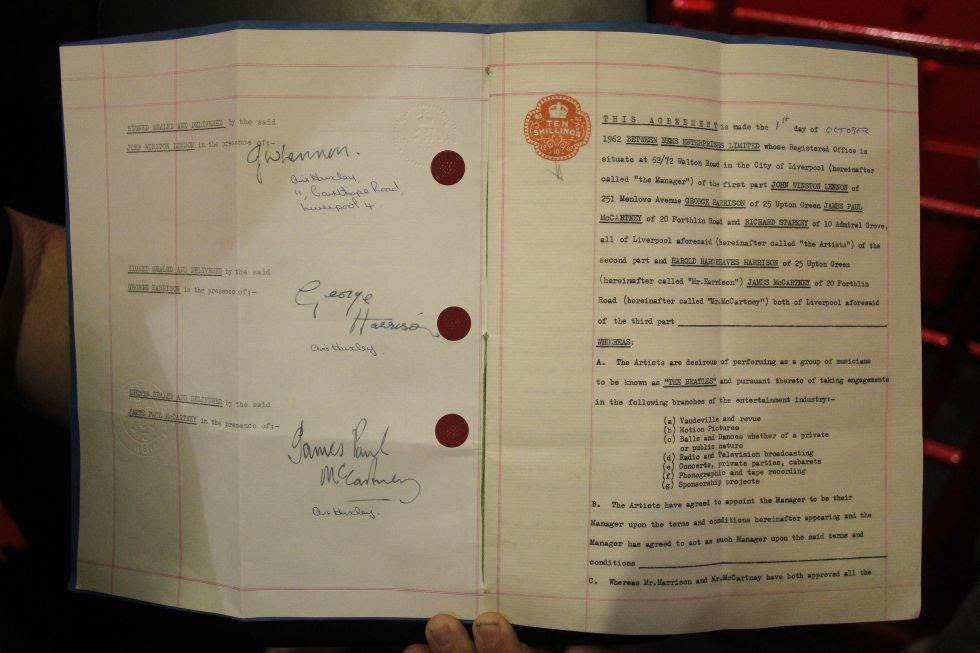 SIGNED SEALED AND DELIVERED by the said
JOHN WINSTON LENNON in the presence of:-
JWLennon.
Avis Huxley
Road,
Liverpool 4.
SIGNED SEALED AND DELIVERED by the said
GEORGE HARRISON in the presence of:-
George
Harrison
Avis Huxley.
SIGNED SEALED AND DELIVERED by the said
JAMES PAUL McCARTNEY in the presence of:-
James Paul
McCartney
Avis Huxley.
TEN
SHILLINGS
THIS AGREEMENT is made the 1st day of OCTOBER
1962 BETWEEN NEMS ENTERPRISES LIMITED whose Registered Office is
situate at 62/72 Walton Road in the City of Liverpool (hereinafter
called "the Manager") of the first part JOHN WINSTON LENNON of
251 Menlove Avenue GEORGE HARRISON of 25 Upton Green JAMES PAUL
McCARTNEY of 20 Forthlin Road and RICHARD STARKEY of 10 Admiral Grove,
all of Liverpool aforesaid (hereinafter called "the Artists") of the
second part and HAROLD HARGREAVES HARRISON of 25 Upton Green
(hereinafter called "Mr.Harrison") JAMES McCARTNEY of 20 Forthlin
Road (hereinafter called "Mr.McCartney") both of Liverpool aforesaid
of the third part
WHEREAS:
A. The Artists are desirous of performing as a group of musicians
to be known as "THE BEATLES" and pursuant thereto of taking engagements
in the following branches of the entertainment industry:-
(a) Vaudeville and revue
(b) Motion Pictures
(c) Balls and Dances whether of a private
or public nature
(d) Radio and Television broadcasting
(e) Concerts, private parties, cabarets
(f) Phonographic and tape recording
(g) Sponsorship projects
B. The Artists have agreed to appoint the Manager to be their
Manager upon the terms and conditions hereinafter appearing and the
Manager has agreed to act as such Manager upon the said terms and
conditions
C. Whereas Mr.Harrison and Mr.McCartney have both approved all the